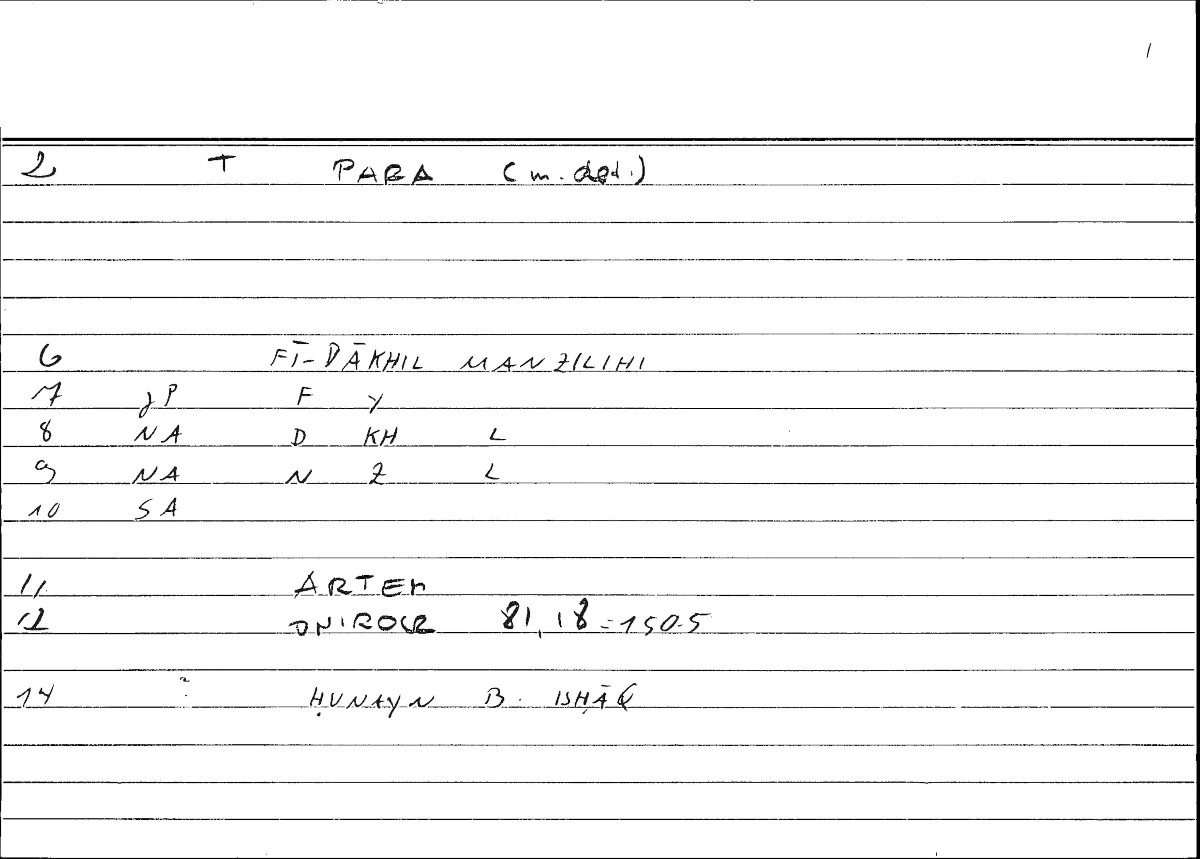 1
2 T PARA (m. dat.)
6 FĪ-DĀKHIL MANZILIHI
7 gP F Y
8 NA D KH L
9 NA N Z L
10 SA
11 ARTEM
12 ONIROCR 81,18=150.5
14 ? ḤUNAYN B. ISḤĀQ